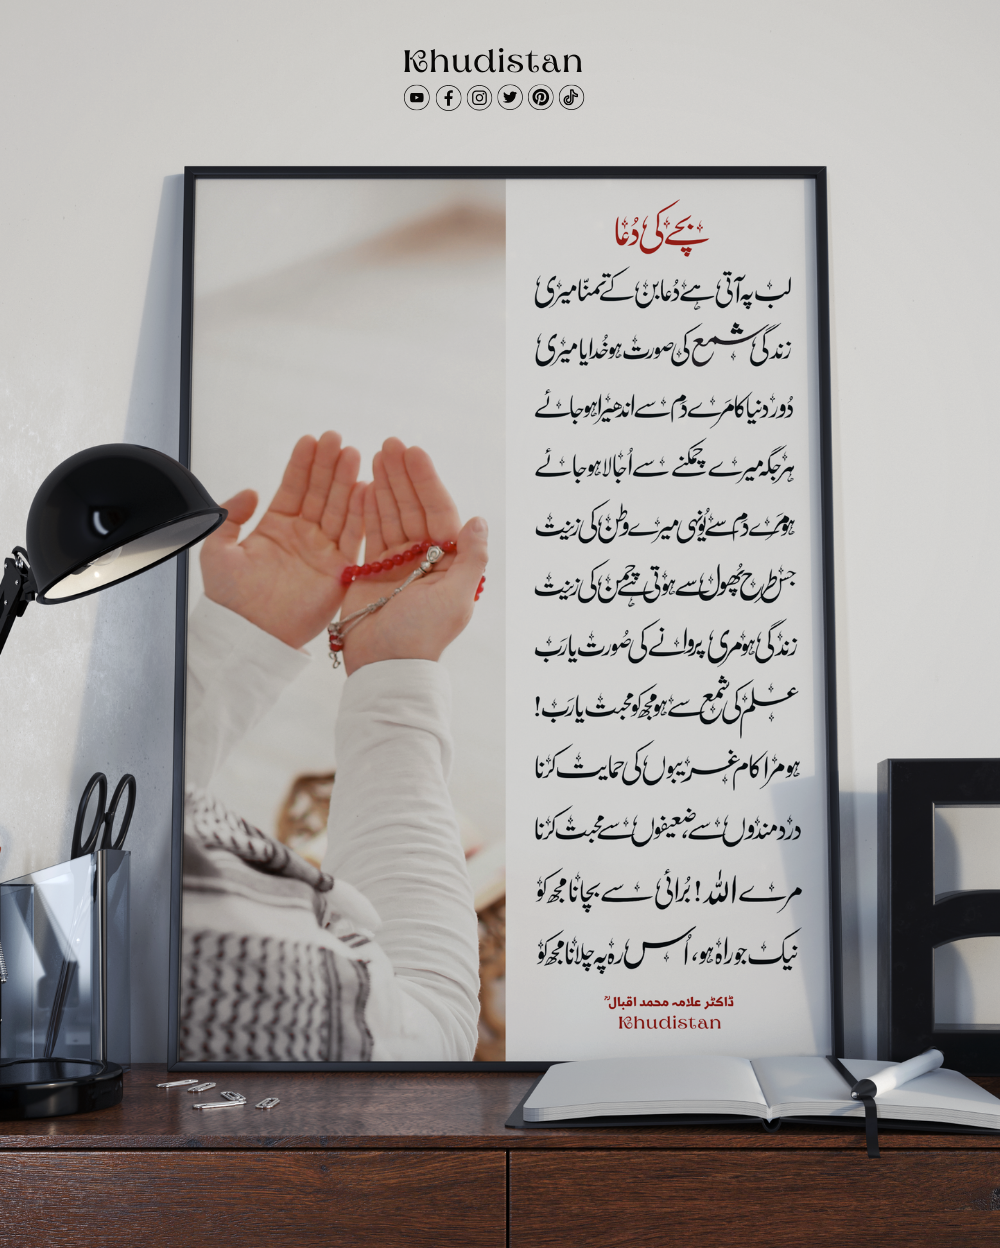 Khudistan
بچّے کی دُعا
لب پہ آتی ہے دُعا بن کے تمنّا میری
زندگی شمع کی صورت ہو خُدایا میری
دُور دنیا کا مَرے دَم سے اندھیرا ہو جائے
ہر جگہ میرے چمکنے سے اُجالا ہو جائے
ہو مَرے دَم سے یُونہی میرے وطن کی زینت
جس طرح پھُول سے ہوتی ہے چمن کی زینت
زندگی ہو مری پروانے کی صُورت یا رَب
علم کی شمع سے ہو مجھ کو محبت یا رَب!
ہو مرا کام غریبوں کی حمایت کرنا
دردمندوں سے، ضعیفوں سے محبت کرنا
مرے اللہ! بُرائی سے بچانا مجھ کو
نیک جو راہ ہو، اُس رہ پہ چلانا مجھ کو
ڈاکٹر علامہ محمد اقبالؒ
Khudistan